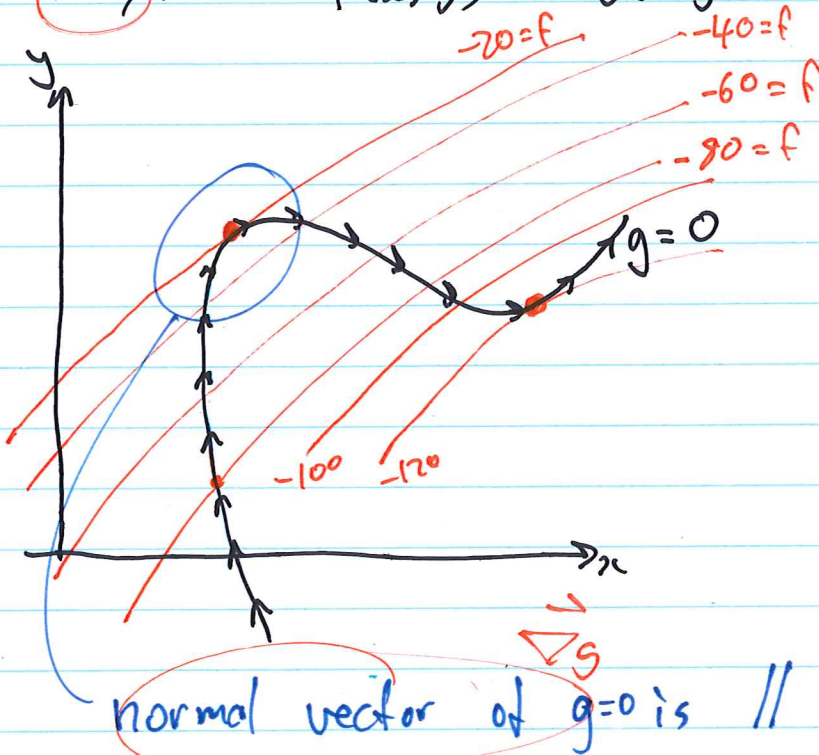 -20=f
-40=f
y
-60=f
-80=f
g=0
-100
-120
x
∇g
normal vector of g=0 is //